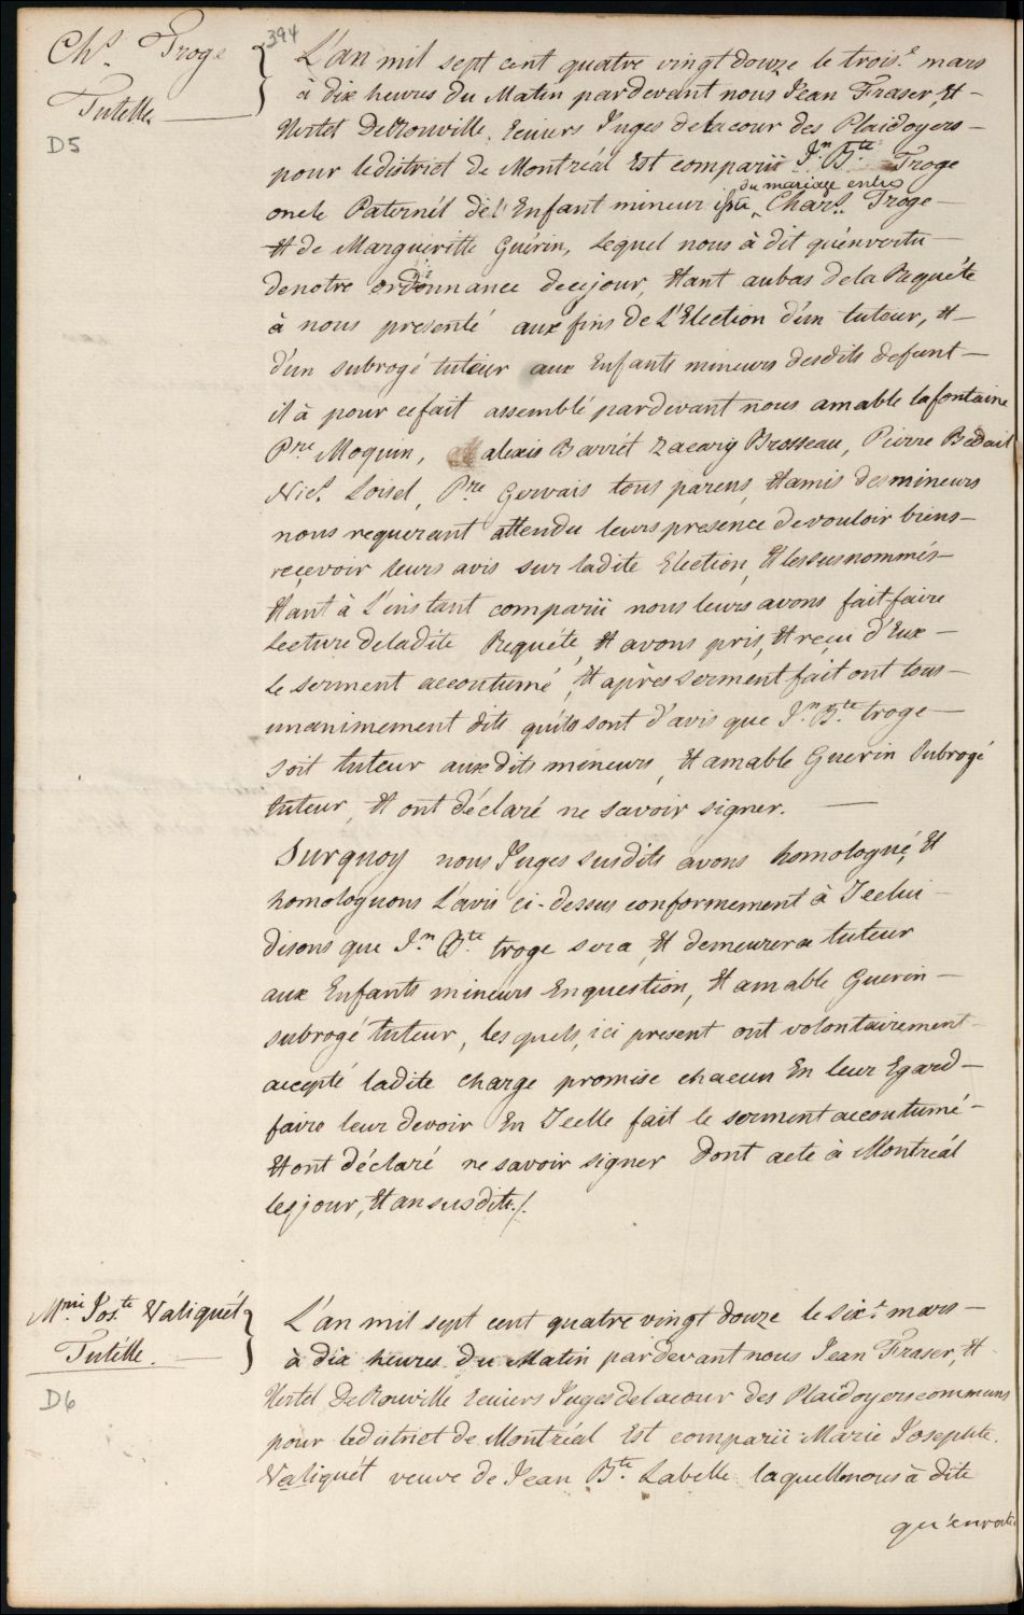 394
Chs. Troge
Tutelle.
D5
L'an mil sept cent quatre vingt douze le trois.e mars
à dix heures du Matin pardevant nous Jean Fraser, Et
Hertel DeRouville, Ecuiers Juges delacour des Plaidoyers
pour ledistrict de Montréal Est comparü J.n B.te Troge
oncle Paternél dél'Enfant mineur issu du mariage entre Charl.s Troge
Et de Margueritte Guérin, Lequel nous à dit qu'énvertu
denotre ordonnance decejour, Etant aubas dela Requéte
à nous presenté aux fins de L'Election d'ún tuteur, Et
d'ún subrogé tuteur aux Enfants mineurs desdits defunt
il à pour cefait assemblé pardevant nous amable lafontaine
P.re Moquin, alexis Barrét Zacarig Brosseau, Pierre Bedait
Nic.s Loisel, P.re Gervais tous parens, Etamis des mineurs
nous requerant attendu leurs presence devouloir biens
reçevoir leurs avis sur ladite Election, Et lessusnommés
Etant à L'instant comparü nous leurs avons faitfaire
Lecture deladite Requéte, Et avons pris, Et reçu d'Eux
Le serment accoutumé, Et aprés serment fait ont tous
unanimement dits quíls sont d'avis que J.n B.te troge
soit tuteur auxdits mineurs, Et amable Guerin Subrogé
tuteur, Et ont déclaré ne savoir signer.
Surquoy nous Juges susdits avons homologué, Et
homologuons L'avis ci-dessus conformement à Icelui
disons que J.n B.te troge sera, Et demeurera tuteur
aux Enfants mineurs Enquestion, Et amable Guerin
subrogé tuteur, lesquels, ici present ont volontairement
accepté ladite charge promise chacun En leur Egard
faire leur devoir En Icelle fait le serment accoutumé
Etont déclaré ne savoir signer Dont acte à Montreál
lesjour, Et an susdits./.
M.rie Jos.te Valiquét
Tutélle.
D6
L'an mil sept cent quatre vingt douze le six.e mars
à dix heures du Matin pardevant nous Jean Fraser, Et
Hertel DeRouville Ecuiers Juges delacour des Plaidoyers communs
pour ledistrict de Montréal Est comparü Marie Josephte
Valiquét veuve de Jean B.te Labelle laquellenous à dite
qu'envertu